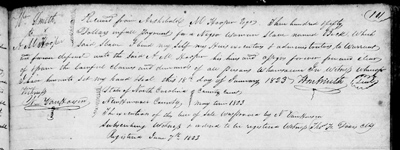 Wm Smith Received from Archibald M Hooper Esqr Three hundred & fifty (191)
to Dollars in full payment for a Negro Woman Slave named Which
A M Hooper said Slave I bind my self my Heirs executors & administrators to Warrant
and forever defend unto the said A. M. Hooper his heirs and assigns forever free
of & from the lawful claims and demands of all Persons Whomsoever In Witness whereof
I have hereunto set my hand & seal this 18th day of January 1823 Wm Smith (Seal)
Witness State of North Carolina County Court
New Hanover County May term 1823
The execution of the bill of Sale was proved by
Subscribing Witness & ordered to be registered Witness Clk
Registered June 7th 1823